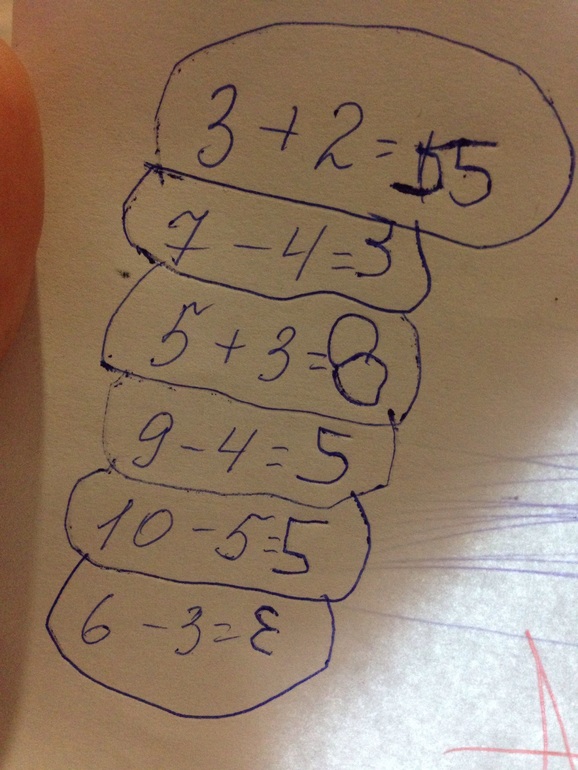 3 + 2 = 55
7 - 4 = 3
5 + 3 = 8
9 - 4 = 5
10 - 5 = 5
6 - 3 = Ɛ